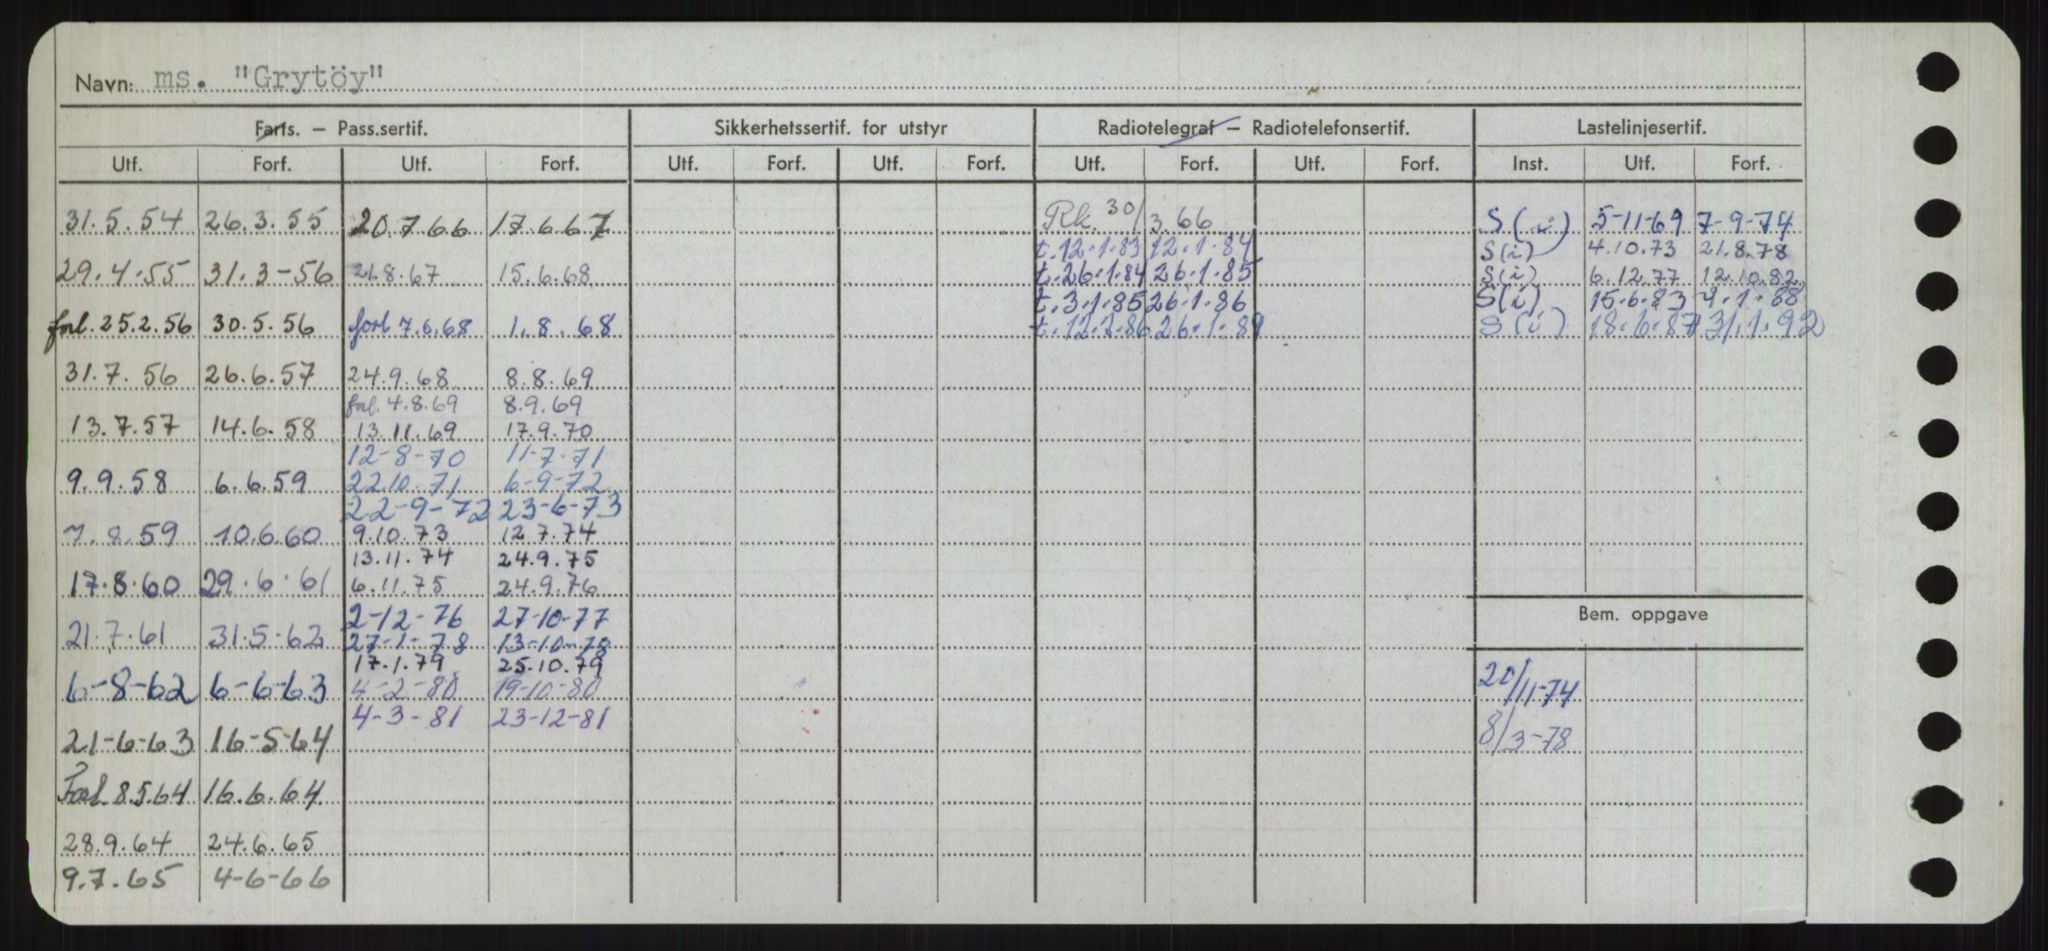 Navn: ms. "Grytöy"
Farts. – Pass.sertif. Sikkerhetssertif. for utstyr Radiotelegraf – Radiotelefonsertif. Lastelinjesertif.
Utf. Forf. Utf. Forf. Utf. Forf. Utf. Forf. Utf. Forf. Utf. Forf. Inst. Utf. Forf.
31.5.54 26.3.55 20.7.66 17.6.67 Rk. 30/3.66 S(i) 5-11-69 7-9-74
t.12.1.83 12.1.84 S(i) 4.10.73 21.8.78
29.4.55 31.3-56 21.8.67 15.6.68 t.26.1.84 26.1.85 S(i) 6.12.77 12.10.82
t.3.1.85 26.1.86 S(i) 15.6.83 4.1.88
forl.25.2.56 30.5.56 forl 7.6.68 1.8.68 t.12.2.86 26.1.89 S(i) 18.6.87 31.1.92
31.7.56 26.6.57 24.9.68 8.8.69
forl.4.8.69 8.9.69
13.7.57 14.6.58 13.11.69 17.9.70
12-8-70 11-7-71
9.9.58 6.6.59 22.10.71 6-9-72
22-9-72 23-6-73
7.8.59 10.6.60 9.10.73 12.7.74
13.11.74 24.9.75
17.8.60 29.6.61 6.11.75 24.9.76
2-12-76 27-10-77 Bem. oppgave
21.7.61 31.5-62 27-1-78 13-10-78
17.1.79 25.10.79
6-8-62 6-6-63 4-2-80 19-10-80 20/11-74
4-3-81 23-12-81
21-6-63 16-5-64 8/3-78
Forl. 8.5.64 16.6.64
28.9.64 24.6.65
9.7.65 4-6-66